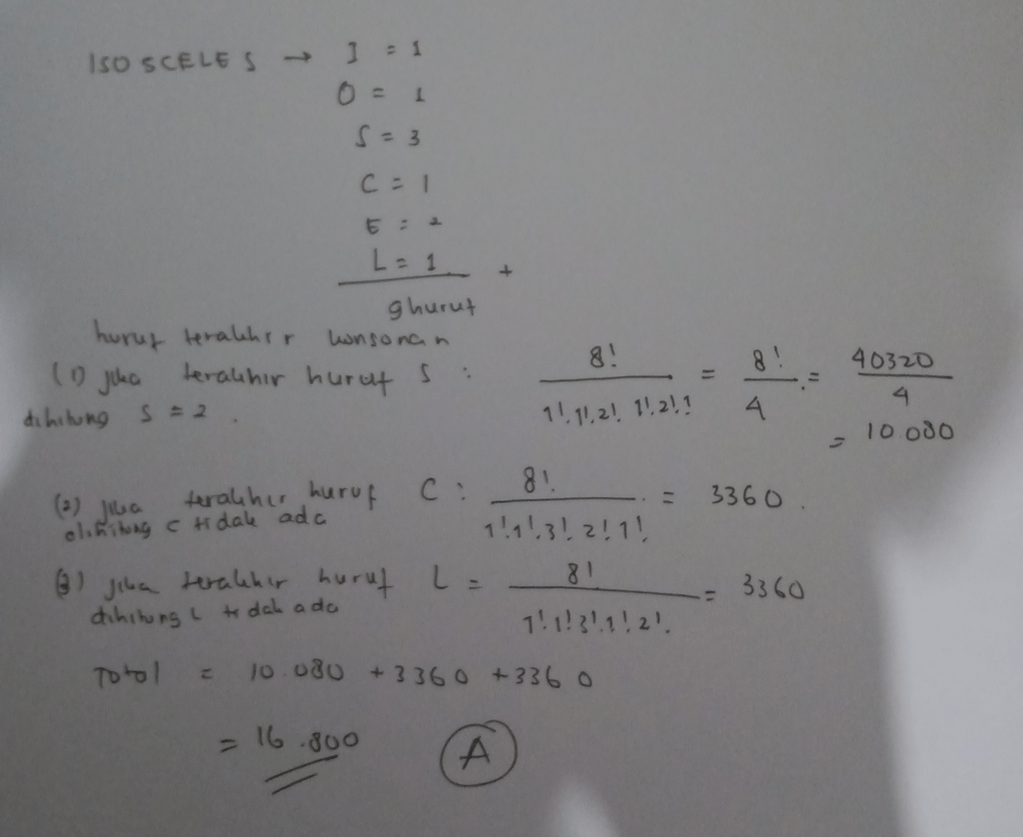 ISOSCELES → I = 1
O = 1
S = 3
C = 1
E = 2
L = 1 +
9 huruf
huruf terakhir konsonan
(1) jika terakhir huruf S : 8! / 1!.1!.2!.1!.2!.1 = 8! / 4 = 40320 / 4
dihitung S = 2 .
= 10.080
(2) jika terakhir huruf C : 8! / 1!1!.3!.2!1!. = 3360 .
dihitung C tidak ada
(3) jika terakhir huruf L = 8! / 1!1!3!.1!2!. = 3360
dihitung L tidak ada
Total = 10.080 + 3360 + 3360
= 16.800 A